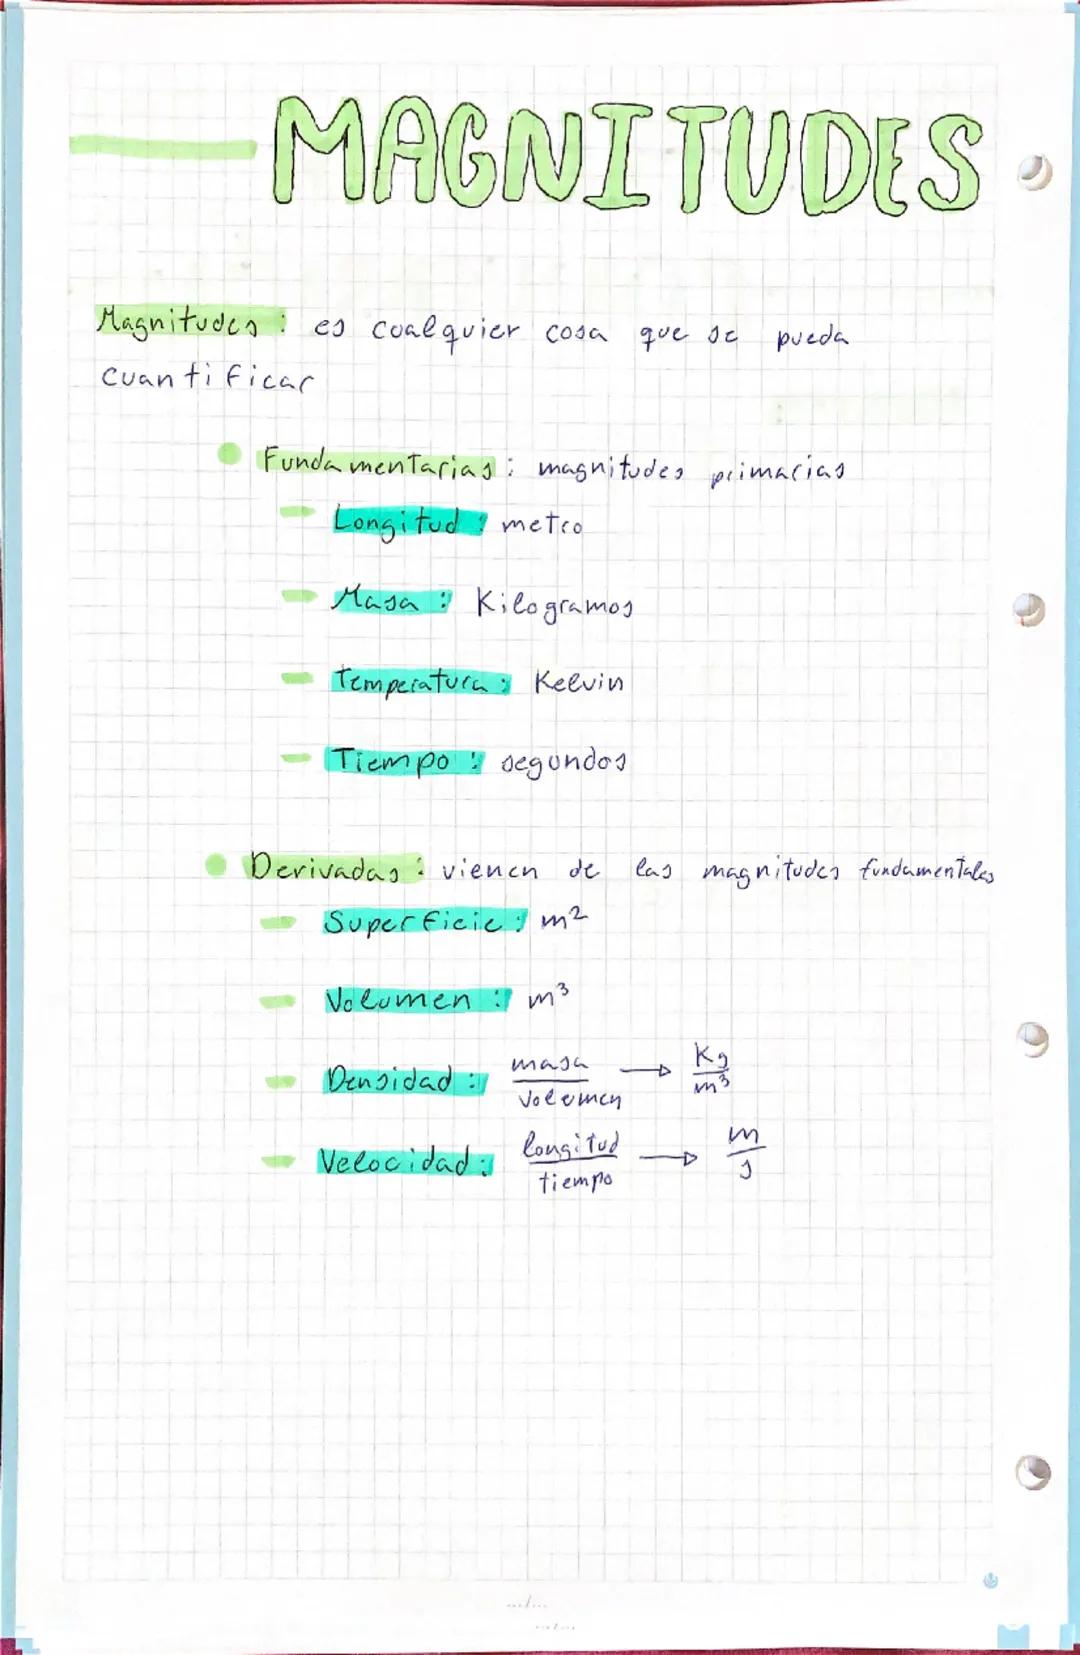 MAGNITUDES
Magnitudes : es cualquier cosa que se pueda
cuantificar
Fundamentarias : magnitudes primarias
Longitud : metro
Masa : Kilogramos
Temperatura : Kelvin
Tiempo : segundos
Derivadas : vienen de las magnitudes fundamentales
Superficie : m²
Volumen : m³
Densidad : masa/volumen → Kg/m³
Velocidad : longitud/tiempo → m/s